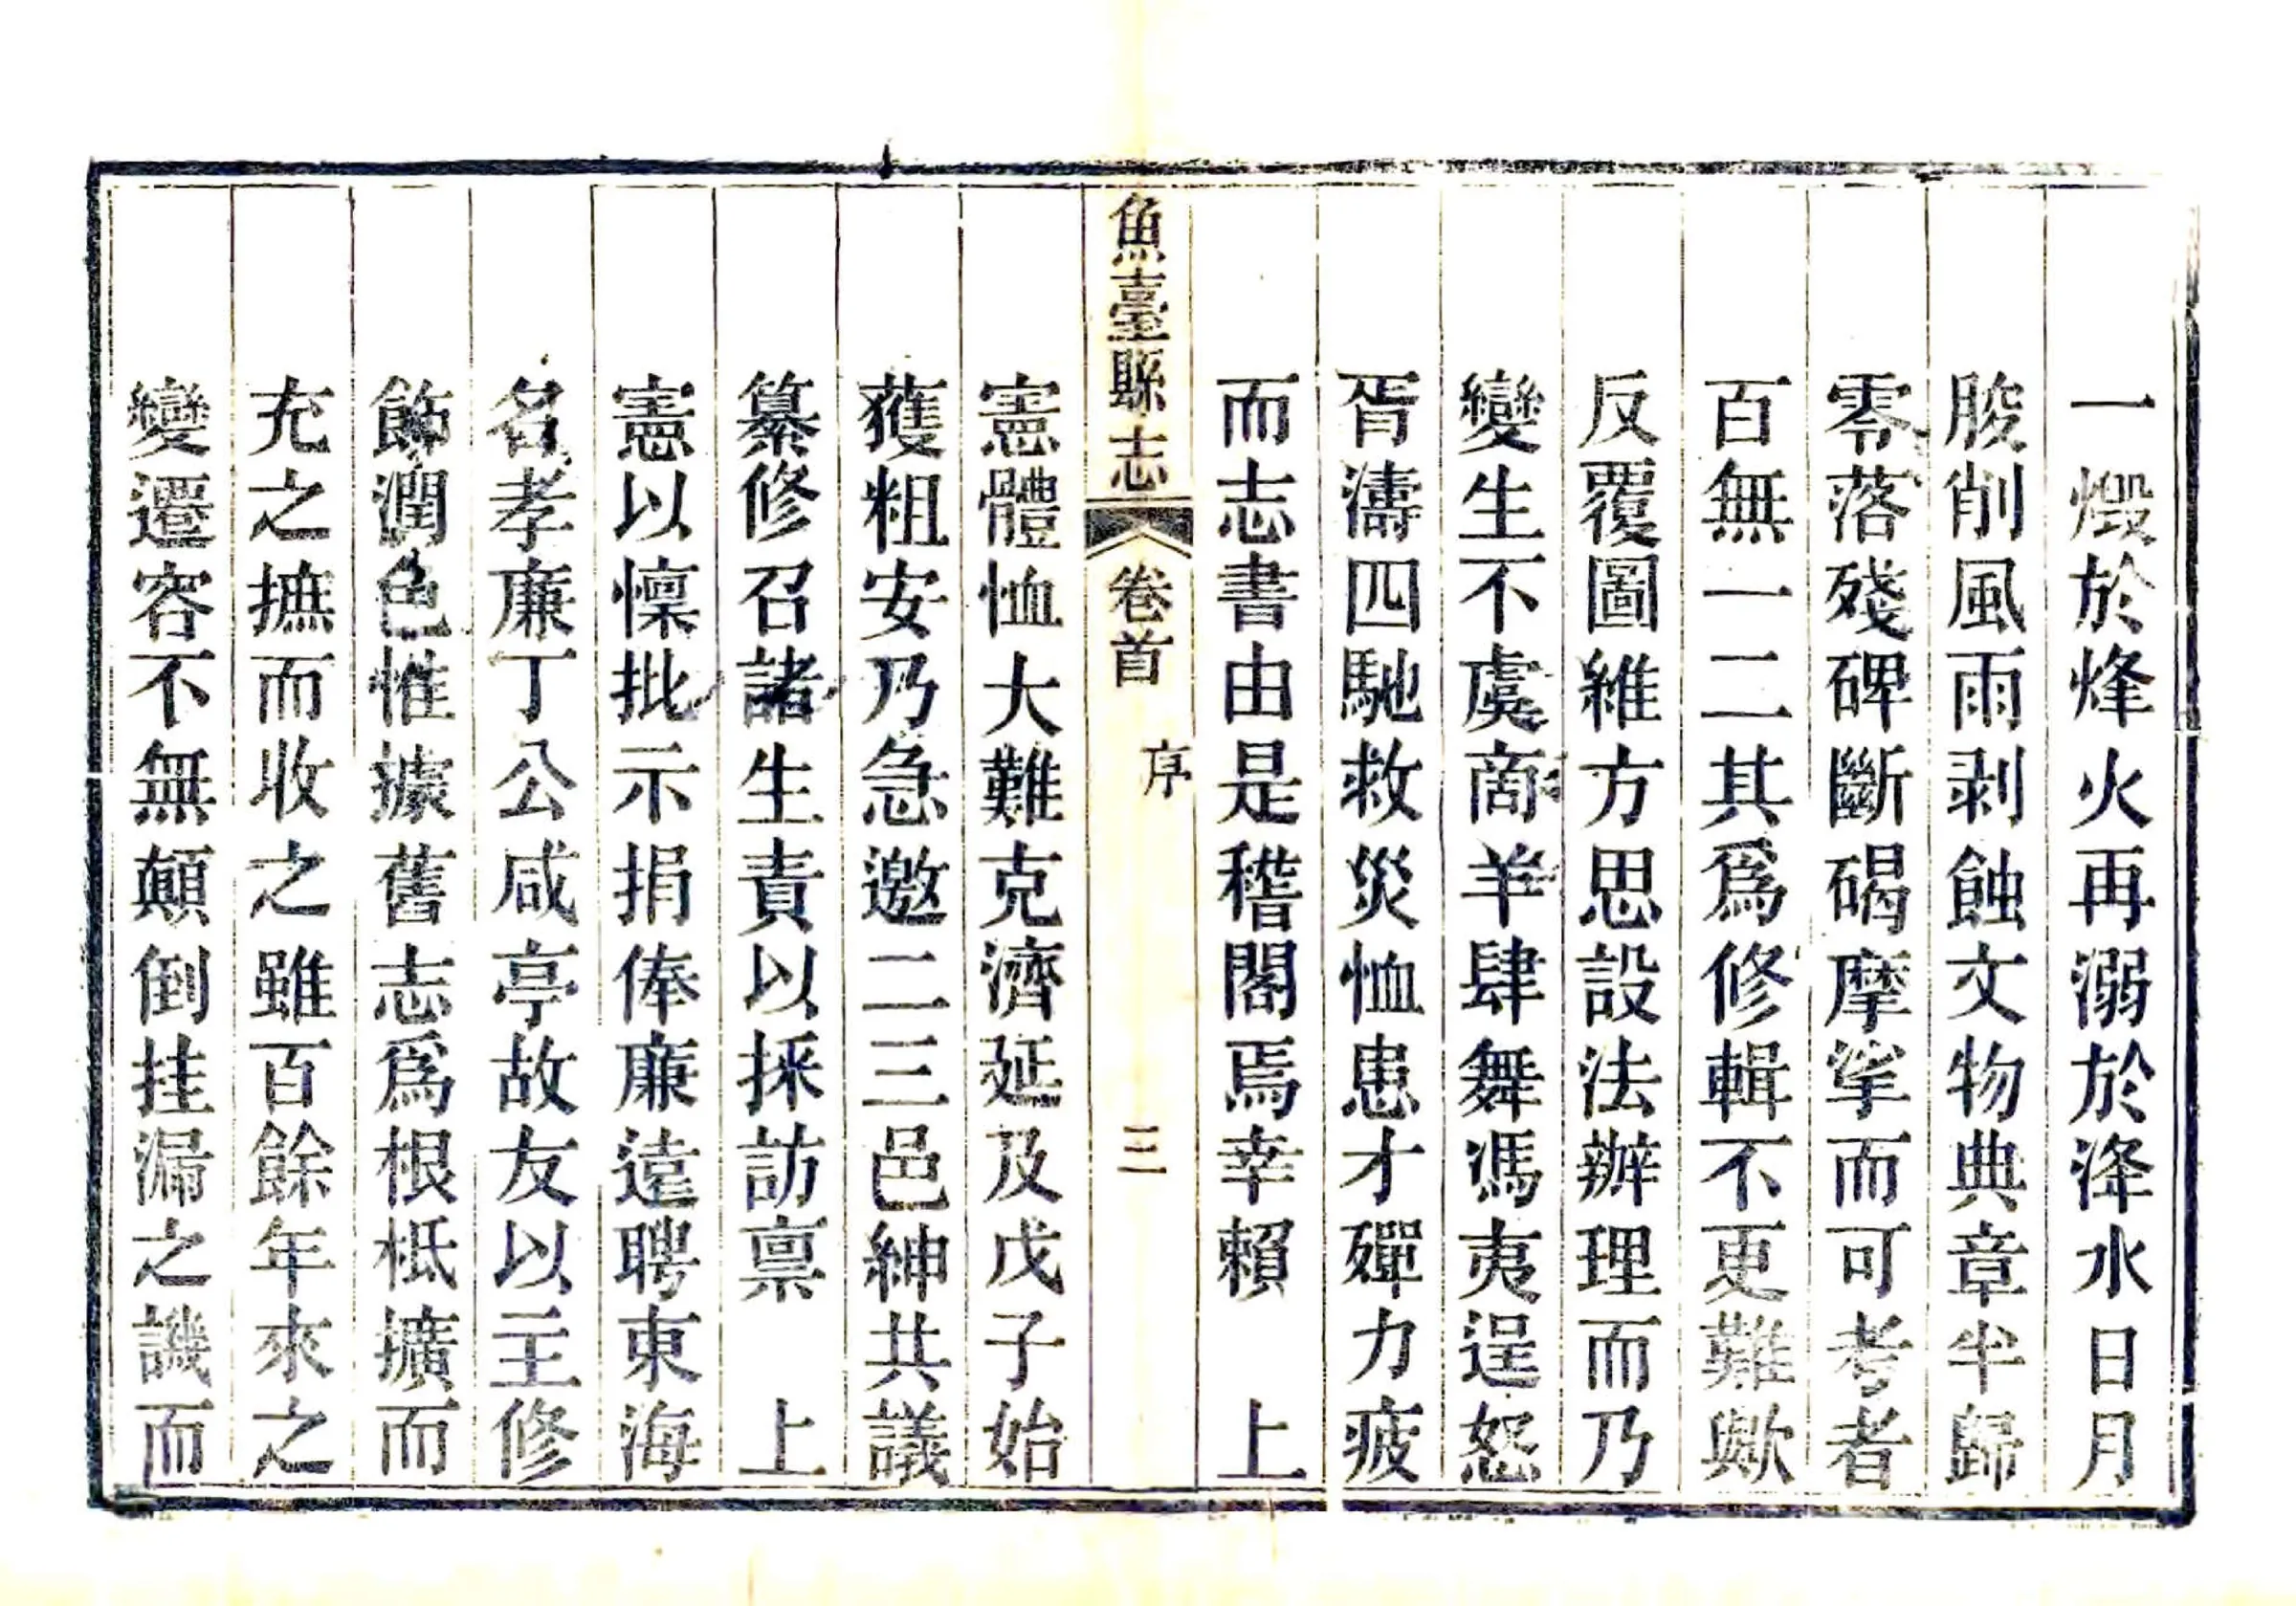 一燬於烽火再溺於洚水日月
朘削風雨剥蝕文物典章半歸
零落殘碑斷碣摩挲而可考者
百無一二其爲修輯不更難歟
反覆圖維方思設法辦理而乃
變生不虞商羊肆舞馮夷逞怒
胥濤四馳救災恤患才殫力疲
而志書由是稽閣焉幸賴　上
魚臺縣志
卷首
序
三
憲體恤大難克濟延及戊子始
獲粗安乃急邀二三邑紳共議
纂修召諸生責以採訪禀　上
憲以懍批示捐俸廉遠聘東海
名孝廉丁公咸亭故友以主修
飾潤色惟據舊志爲根柢擴而
充之摭而收之雖百餘年來之
變遷容不無顛倒挂漏之譏而